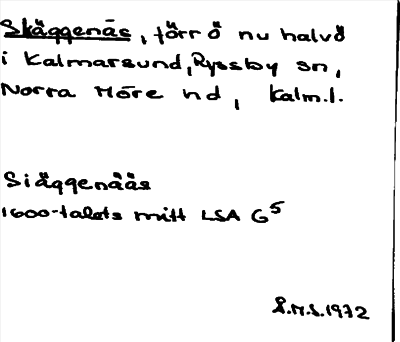 Skäggenäs, förr ö nu halvö
i Kalmarsund, Ryssby sn,
Norra Möre hd, Kalm.l.
Siäggenääs
1600-talets mitt LSA G5
S.M.S. 1972